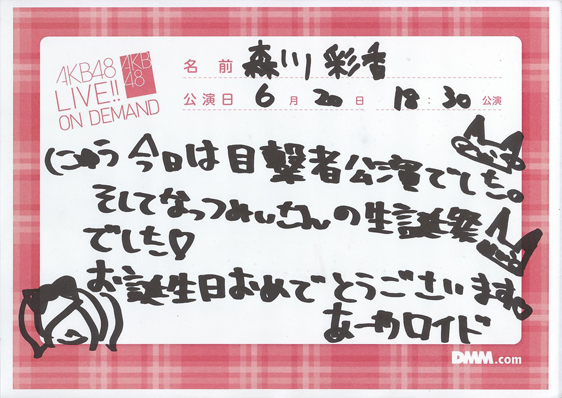 AKB48
LIVE!!
ON DEMAND
AKB
48
名前 森川彩香
公演日 6月20日 18:30公演
にゅう 今日は目撃者公演でした。
そしてなっつみぃさんの生誕祭
でした♡
お誕生日おめでとうございます。
あーやロイド
DMM.com